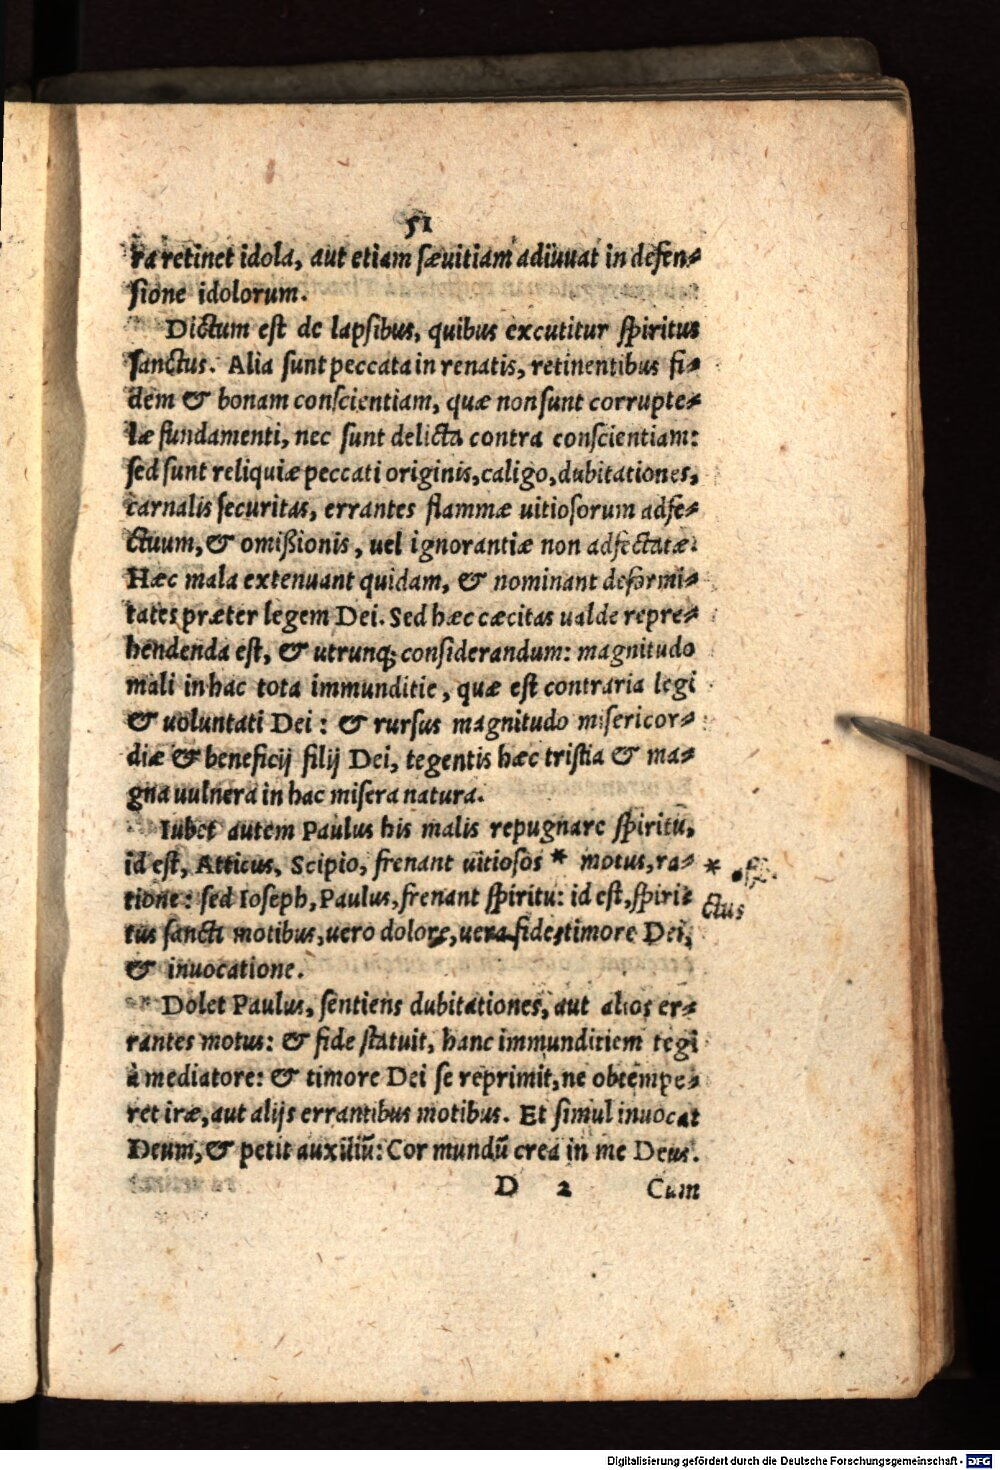 51
ra retinet idola, aut etiam sæuitiam adiuuat in defen-
sione idolorum.
Dictum est de lapsibus, quibus excutitur spiritus
sanctus. Alia sunt peccata in renatis, retinentibus fi-
dem & bonam conscientiam, quæ non sunt corrupte-
læ fundamenti, nec sunt delicta contra conscientiam:
sed sunt reliquiæ peccati originis, caligo, dubitationes,
carnalis securitas, errantes flammæ uitiosorum adfe-
ctuum, & omißionis, uel ignorantiæ non adfectatæ.
Hæc mala extenuant quidam, & nominant deformi-
tates præter legem Dei. Sed hæc cæcitas ualde repre-
hendenda est, & utrunq; considerandum: magnitudo
mali in hac tota immunditie, quæ est contraria legi
& uoluntati Dei: & rursus magnitudo misericor-
diæ & beneficij filij Dei, tegentis hæc tristia & ma-
gna uulnera in hac misera natura.
Iubet autem Paulus his malis repugnare spiritu,
id est, Atticus, Scipio, frenant uitiosos * motus, ra-
tione: sed Ioseph, Paulus, frenant spiritu: id est, spiri-
tus sancti motibus, uero dolore, uera fide, timore Dei,
& inuocatione.
Dolet Paulus, sentiens dubitationes, aut alios er-
rantes motus: & fide statuit, hanc immunditiem tegi
à mediatore: & timore Dei se reprimit, ne obtempe-
ret iræ, aut alijs errantibus motibus. Et simul inuocat
Deum, & petit auxiliū: Cor mundū crea in me Deus.
D 2 Cum
*
ctus
Digitalisierung gefördert durch die Deutsche Forschungsgemeinschaft - DFG